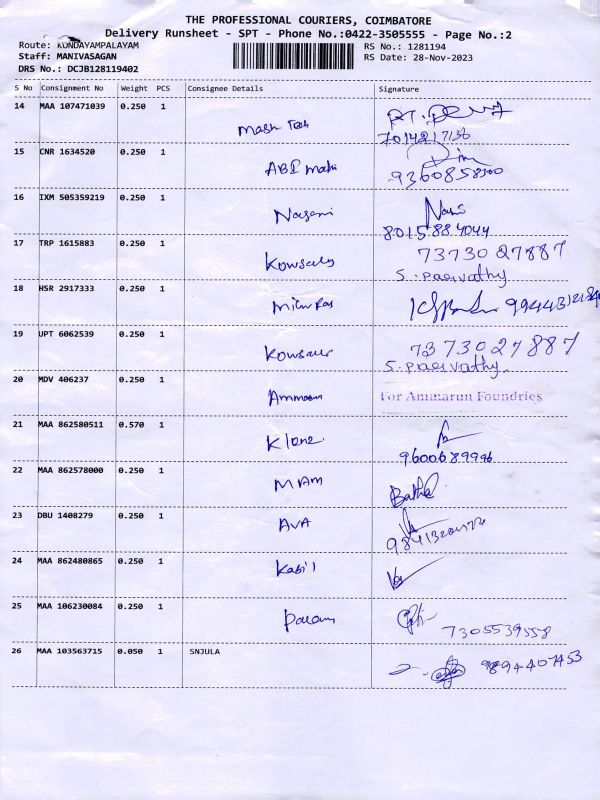 THE PROFESSIONAL COURIERS, COIMBATORE
Delivery Runsheet - SPT - Phone No.:0422-3505555 - Page No.:2
Route: KONDAYAMPALAYAM
Staff: MANIVASAGAN
DRS No.: DCJB128119402
RS No.: 1281194
RS Date: 28-Nov-2023
S No Consignment No Weight PCS Consignee Details Signature
14 MAA 107471039 0.250 1
7014217136
15 CNR 1634520 0.250 1
ABI
9360858300
16 IXM 505359219 0.250 1
8015884044
17 TRP 1615883 0.250 1 7373027887
S. Parvathy
18 HSR 2917333 0.250 1
19 UPT 6062539 0.250 1 7373027887
S. Parvathy
20 MDV 406237 0.250 1 For Ammarun Foundries
21 MAA 862580511 0.570 1
9600689996
22 MAA 862578000 0.250 1
MAM
23 DBU 1408279 0.250 1
AVA
24 MAA 862480865 0.250 1
25 MAA 106230084 0.250 1
7305539558
26 MAA 103563715 0.050 1 SNJULA
9894407453